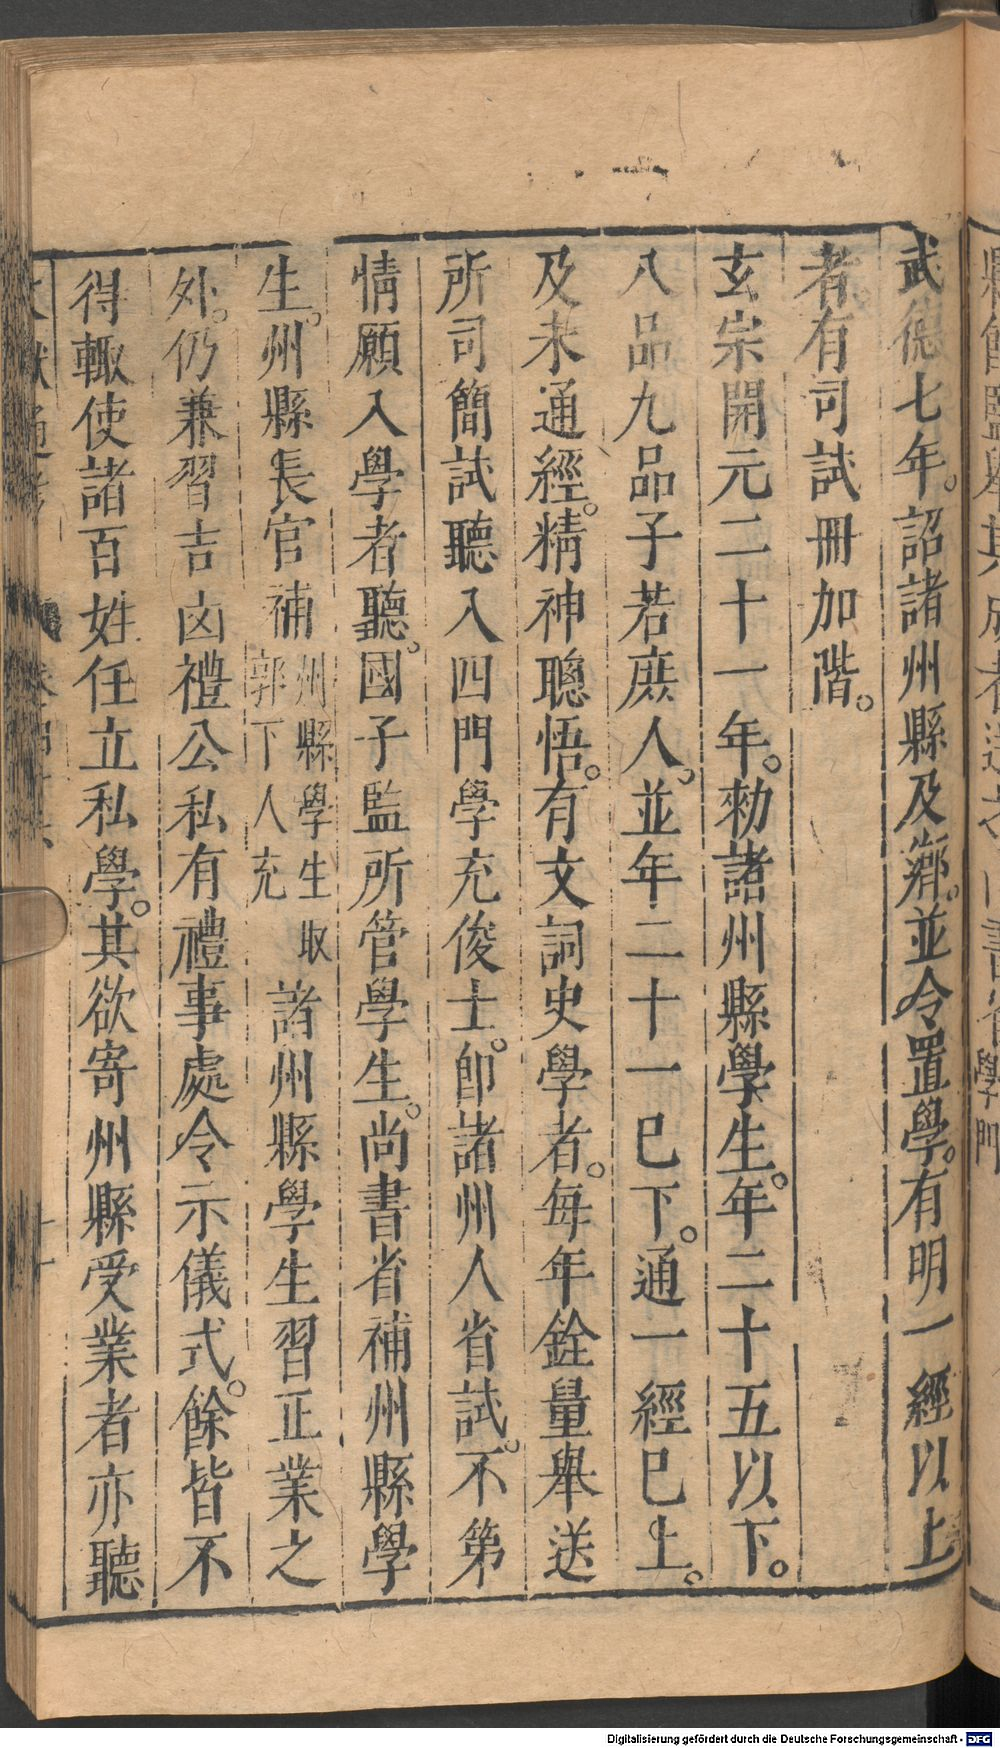 武德七年。詔諸州縣及鄉。並令置學。有明一經以上
者。有司試冊加階。
玄宗開元二十一年。勑諸州縣學生。年二十五以下。
八品九品子若庶人。並年二十一已下。通一經已上。
及未通經。精神聰悟。有文詞史學者。每年銓量舉送
所司簡試聽入四門學充俊士。即諸州人省試。不第
情願入學者聽。國子監所管學生。尚書省補州縣學
生。州縣長官補州縣學生取郭下人充諸州縣學生習正業之
外。仍兼習吉凶禮公私有禮事處令示儀式。餘皆不
得輙使諸百姓任立私學。其欲寄州縣受業者亦聽
Digitalisierung gefördert durch die Deutsche Forschungsgemeinschaft - DFG